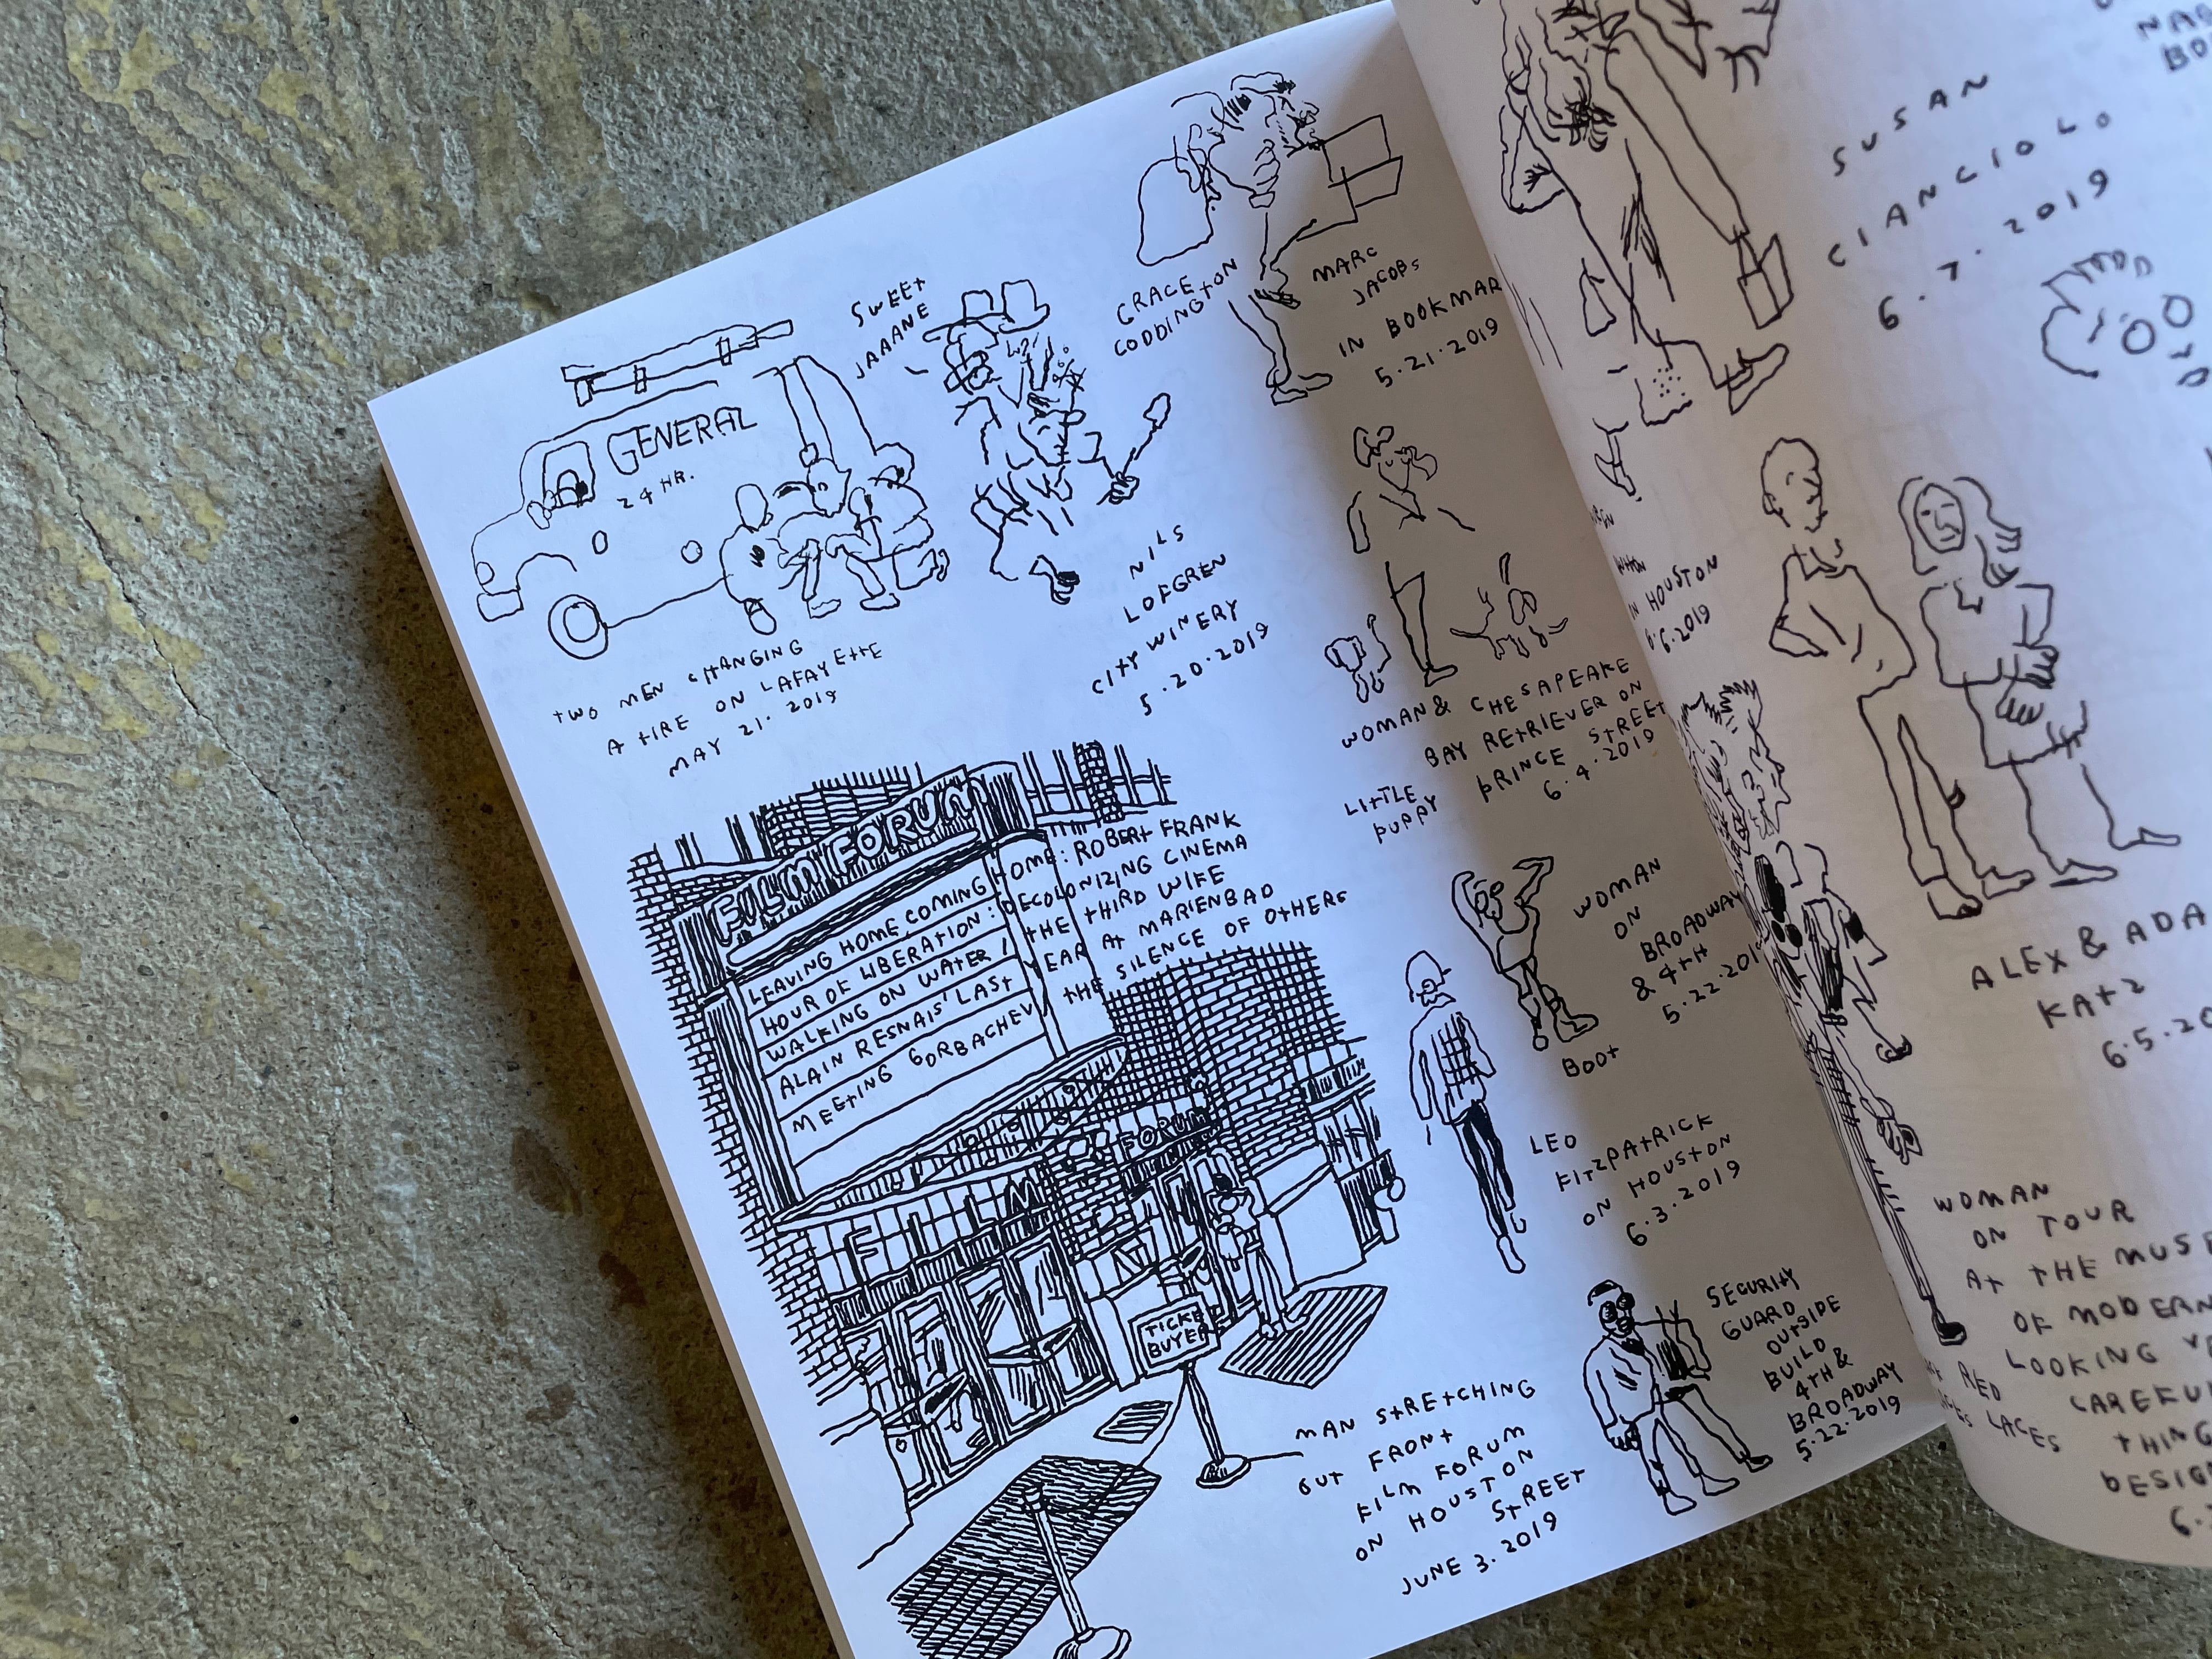 GENERAL
24 HR.
TWO MEN CHANGING
A TIRE ON LAFAYETTE
MAY 21. 2019
SWEET
JAAANE
NILS
LOFGREN
CITY WINERY
5.20.2019
GRACE
CODDINGTON
MARC
JACOBS
IN BOOKMAR
5.21.2019
WOMAN & CHESAPEAKE
BAY RETRIEVER ON
PRINCE STREET
6.4.2019
LITTLE
PUPPY
FILM FORUM
LEAVING HOME, COMING HOME: ROBERT FRANK
HOUR OF LIBERATION: DECOLONIZING CINEMA
WALKING ON WATER / THE THIRD WIFE
ALAIN RESNAIS' LAST YEAR AT MARIENBAD
MEETING GORBACHEV / THE SILENCE OF OTHERS
FORUM
FILM
TICKE
BUYER
MAN STRETCHING
OUT FRONT
FILM FORUM
ON HOUSTON
STREET
JUNE 3. 2019
WOMAN
ON
BROADWAY
& 4TH
5.22.201
BOOT
LEO
FITZPATRICK
ON HOUSTON
6.3.2019
SECURITY
GUARD
OUTSIDE
BUILD
4TH &
BROADWAY
5.22.2019
SUSAN
CIANCIOLO
6.7.2019
IN HOUSTON
6.6.2019
ALEX & ADA
KATZ
6.5.20
WOMAN
ON TOUR
AT THE MUSE
OF MODERN
LOOKING
CAREFU
THING
DESIG
RED
LACES